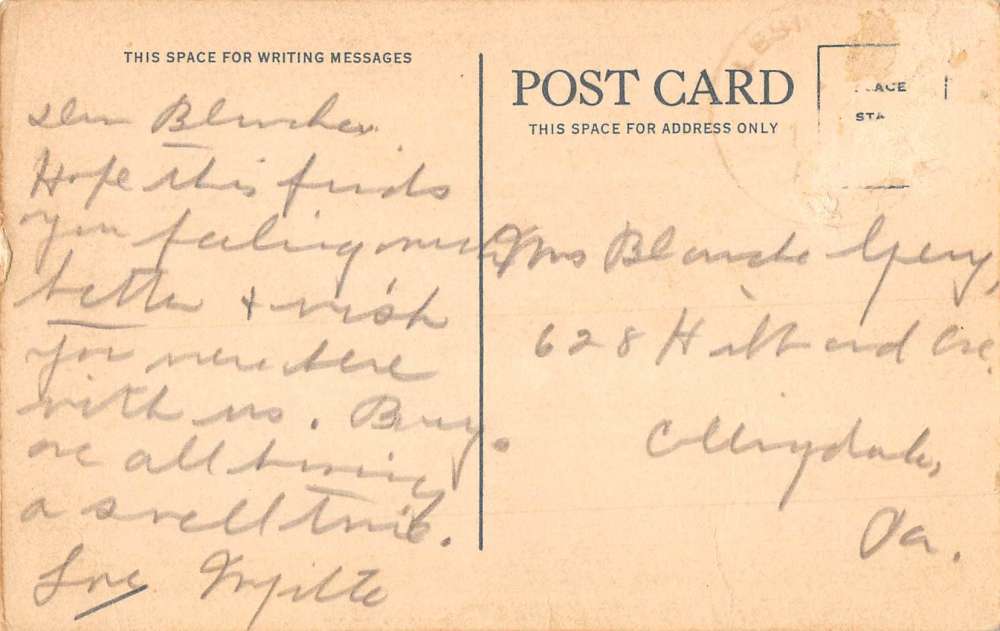 THIS SPACE FOR WRITING MESSAGES
Dear Blanche
Hope this finds
you feeling much
better + wish
you were here
with us.
are all having
a swell time.
Love Myrtle
POST CARD
THIS SPACE FOR ADDRESS ONLY
Mrs Blanche
628 Ave,
Collingdale,
Pa.